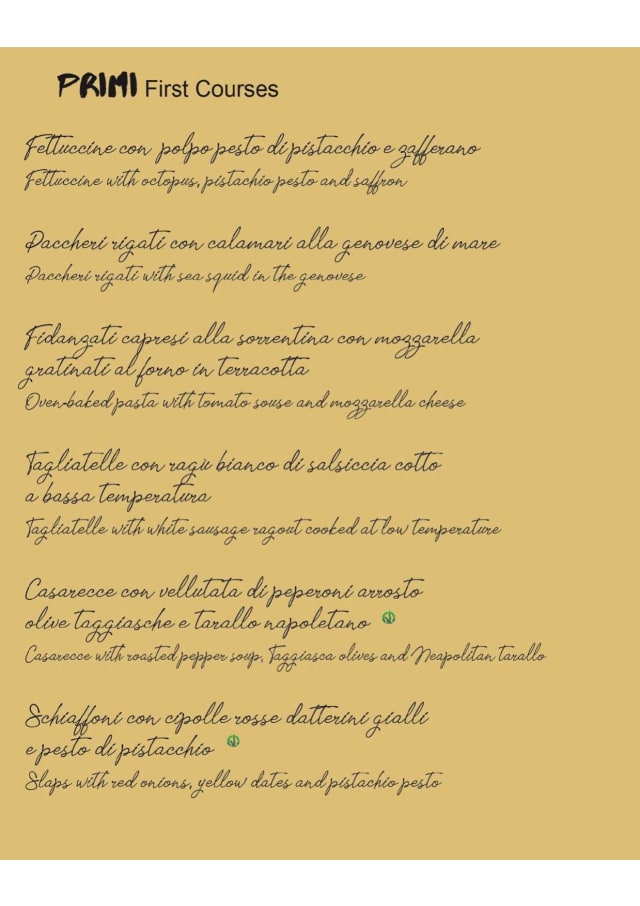 PRIMI First Courses
Fettuccine con polpo pesto di pistacchio e zafferano
Fettuccine with octopus, pistachio pesto and saffron
Paccheri rigati con calamari alla genovese di mare
Paccheri rigati with sea squid in the genovese
Fidanzati capresi alla sorrentina con mozzarella
gratinati al forno in terracotta
Oven-baked pasta with tomato souse and mozzarella cheese
Tagliatelle con ragù bianco di salsiccia cotto
a bassa temperatura
Tagliatelle with white sausage ragout cooked at low temperature
Casarecce con vellutata di peperoni arrosto
olive taggiasche e tarallo napoletano
Casarecce with roasted pepper soup, Taggiasca olives and Neapolitan tarallo
Schiaffoni con cipolle rosse datterini gialli
e pesto di pistacchio
Slaps with red onions, yellow dates and pistachio pesto